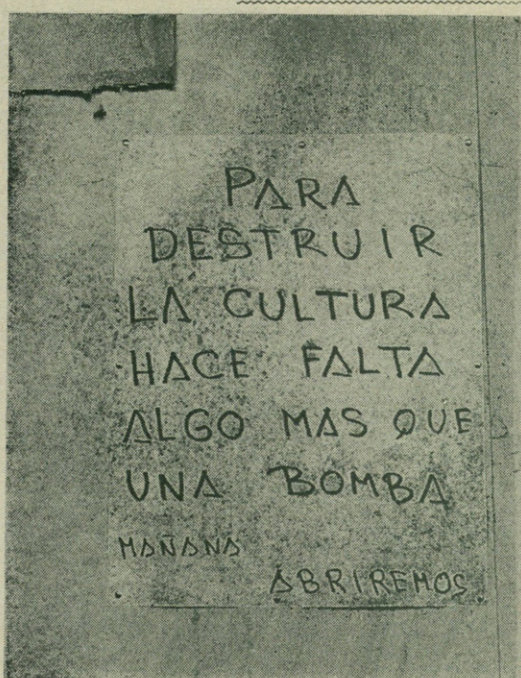 PARA
DESTRUIR
LA CULTURA
HACE FALTA
ALGO MAS QUE
UNA BOMBA
MAÑANA
ABRIREMOS